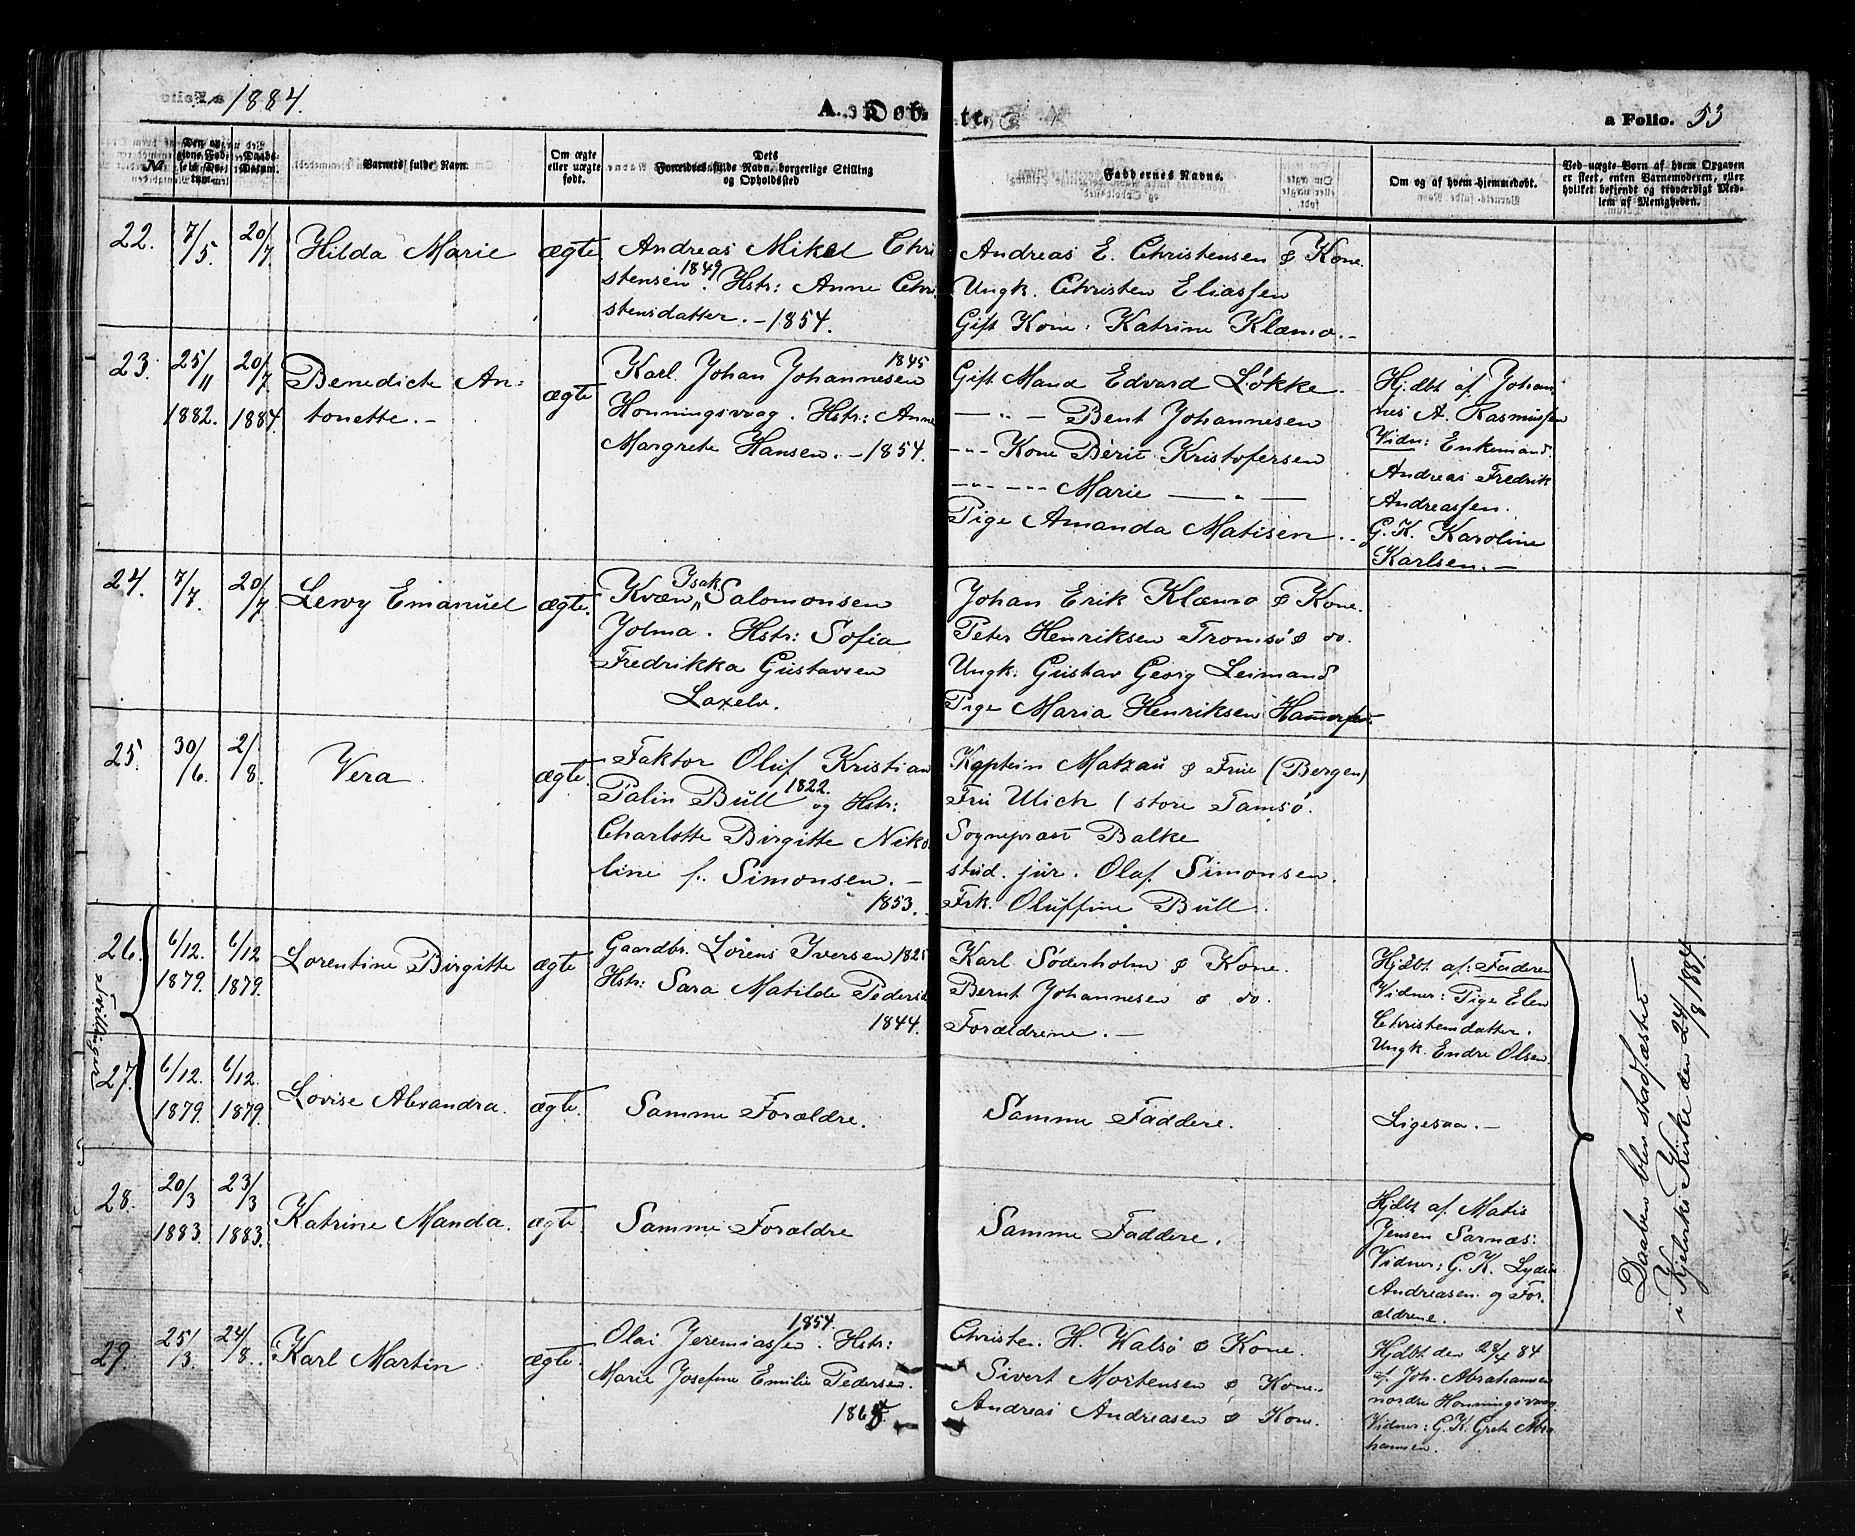 1884.
A. Døbte.
a Folio. 53
№
Den angivne Fødsels Datum.
Daabs-Datum.
Barnets fulde Navn.
Om ægte eller uægte født.
Dets Forældres fulde Navn, borgerlige Stilling og Opholdssted
Faddernes Navne.
Om og af hvem hjemmedøbt.
Ved uægte Børn af hvem Opgaven er skeet, enten Barnemoderen, eller hvilket bekjendt og tidværdigt Medlem af Menigheden.
22.
7/5.
20/7
Hilda Marie
ægte
Andreas Mikel Chri
stensen. 1849 Hstr: Anne Chri
stensdatter. – 1854.
Andreas E. Christensen & Kone.
Ungk. Christen Eliassen
Gift Kone. Katrine Klæmo. –
23.
25/11
1882.
20/7
1884.
Benedicte An=
tonette. –
ægte
Karl Johan Johannesen 1845
Honningsvaag. Hstr: Anne
Margrete Hansen. – 1854.
Gift Mand Edvard Løkke.
— „ — Bent Johannesen
-„- Kone Berit Kristofersen
-„- -„- Marie — „ —
Pige Amanda Matisen. .
Hjdbt af Johan
nes A. Rasmussen
Vidn: Enkemand
Andreas Fredrik
Andreassen.
G. K. Karoline
Karlsen. –
24.
7/7.
20/7
Levy Emanuel
ægte.
Kvæn Isak Salomonsen
Jolma. Hstr: Sofia
Fredrikka Gustavsen
Laxelv.
Johan Erik Klæmo & Kone.
Peter Henriksen Tromsø & do.
Ungk. Gustav Georg Leimand
Pige Maria Henriksen Hammerfest
25.
30/6.
2/8.
Vera
ægte.
Faktor Oluf Kristian
Palin Bull 1822. og Hstr:
Charlotte Birgitte Niko
line f. Simonsen. –
1853.
Kaptein Matzau & Frue (Bergen)
Fru Ulich / store Tamsø.
Sogneprast Balke
stud. jur. Olaf Simonsen.
Frk. Oluffine Bull.
Tvillinger
26.
6/12.
1879.
6/12
1879.
Lorentine Birgitte
ægte
Gaardbr. Lorens Iversen 1825
Hstr: Sara Matilde Peders
1844.
Karl Söderholm & Kone.
Bernt Johannesen & do.
Forældrene. –
Hjdbt af: Faderen
Vidner: Pige Elen
Christensdatter.
Ungk. Endre Olsen
27.
6/12.
1879.
6/12.
1879.
Lovise Alexandra.
ægte.
Samme Forældre.
Samme Faddere.
Ligesaa. –
28.
20/3
1883.
23/3
1883.
Katrine Manda.
ægte
Samme Forældre
Samme Faddere.
Hjdbt af Matis
Jensen Sarnæs:
Vidner: G. K. Lydia
Andreasen og For.
ældrene.
Daaben blev stadfæstet
i Kjelviks Kirke den 24/8 1884.
29.
25/3.
24/8.
Karl Martin
ægte.
Olai Jeremiassen 1854. Hstr:
Marie Josefine Emilie Pedersen.
Christen H. Valsø & Kone.
Sivert Mortensen & Kone.
Andreas Andreasen & Kone.
Hjdbt den 28/4 84
af Joh. Abrahamsen
nordre Honningsvaag
Vidner: G. K. Grete Abra
hamsen.